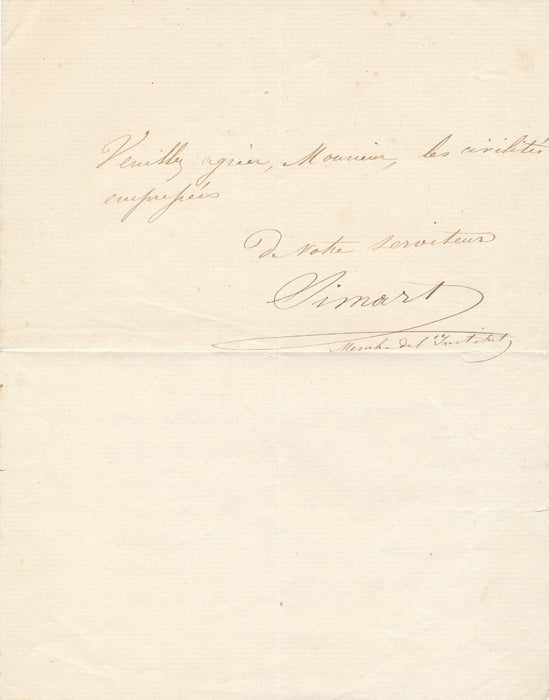 Veuillez agréer, Monsieur, les civilités
empressées
De Votre serviteur
Simart
Membre de l'Institut